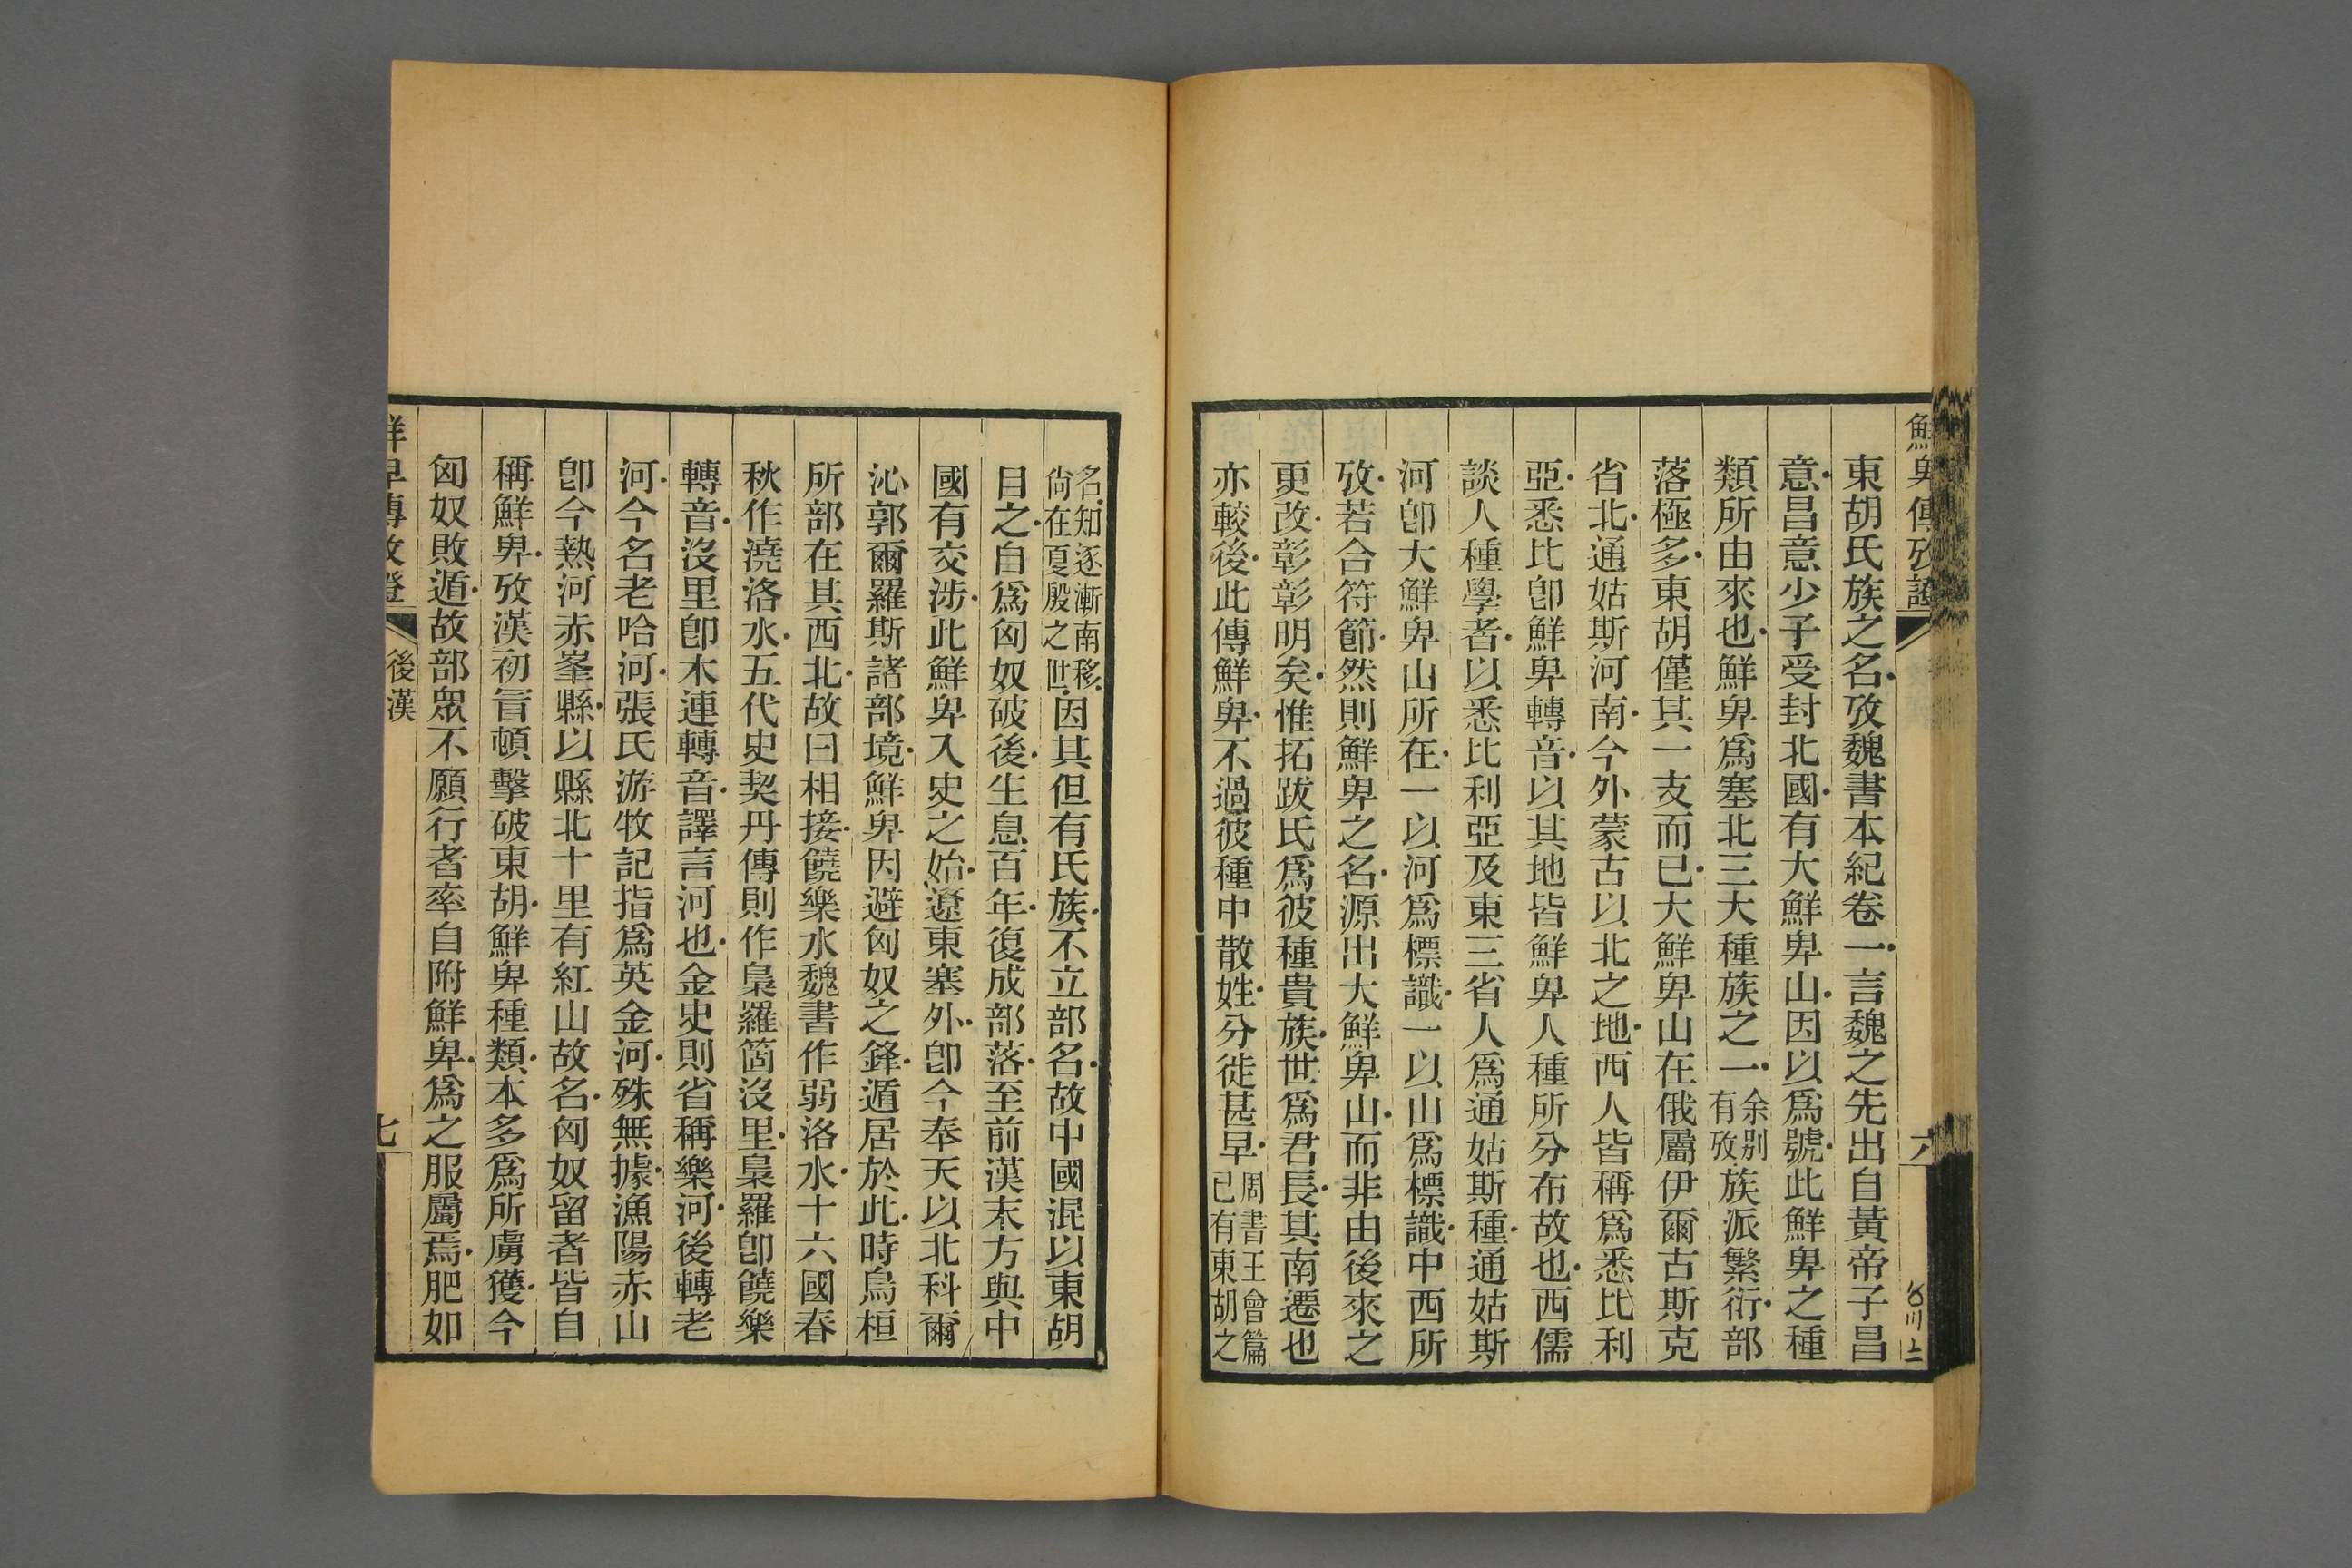 鮮卑傳攷證
六
東胡氏族之名攷魏書本紀卷一言魏之先出自黃帝子昌
意昌意少子受封北國有大鮮卑山因以爲號此鮮卑之種
類所由來也鮮卑爲塞北三大種族之一余別有攷族派繁衍部
落極多東胡僅其一支而已大鮮卑山在俄屬伊爾古斯克
省北通姑斯河南今外蒙古以北之地西人皆稱爲悉比利
亞悉比卽鮮卑轉音以其地皆鮮卑人種所分布故也西儒
談人種學者以悉比利亞及東三省人爲通姑斯種通姑斯
河卽大鮮卑山所在一以河爲標識一以山爲標識中西所
攷若合符節然則鮮卑之名源出大鮮卑山而非由後來之
更改彰彰明矣惟拓跋氏爲彼種貴族世爲君長其南遷也
亦較後此傳鮮卑不過彼種中散姓分徙甚早周書王會篇已有東胡之
名知逐漸南移尙在夏殷之世因其但有氏族不立部名故中國混以東胡
目之自爲匈奴破後生息百年復成部落至前漢末方與中
國有交涉此鮮卑入史之始遼東塞外卽今奉天以北科爾
沁郭爾羅斯諸部境鮮卑因避匈奴之鋒遁居於此時烏桓
所部在其西北故曰相接饒樂水魏書作弱洛水十六國春
秋作澆洛水五代史契丹傳則作梟羅箇沒里梟羅卽饒樂
轉音沒里卽木連轉音譯言河也金史則省稱樂河後轉老
河今名老哈河張氏游牧記指爲英金河殊無據漁陽赤山
卽今熱河赤峯縣以縣北十里有紅山故名匈奴留者皆自
稱鮮卑攷漢初冒頓擊破東胡鮮卑種類本多爲所虜獲今
匈奴敗遁故部眾不願行者率自附鮮卑爲之服屬焉肥如
鮮卑傳攷證
後漢
七